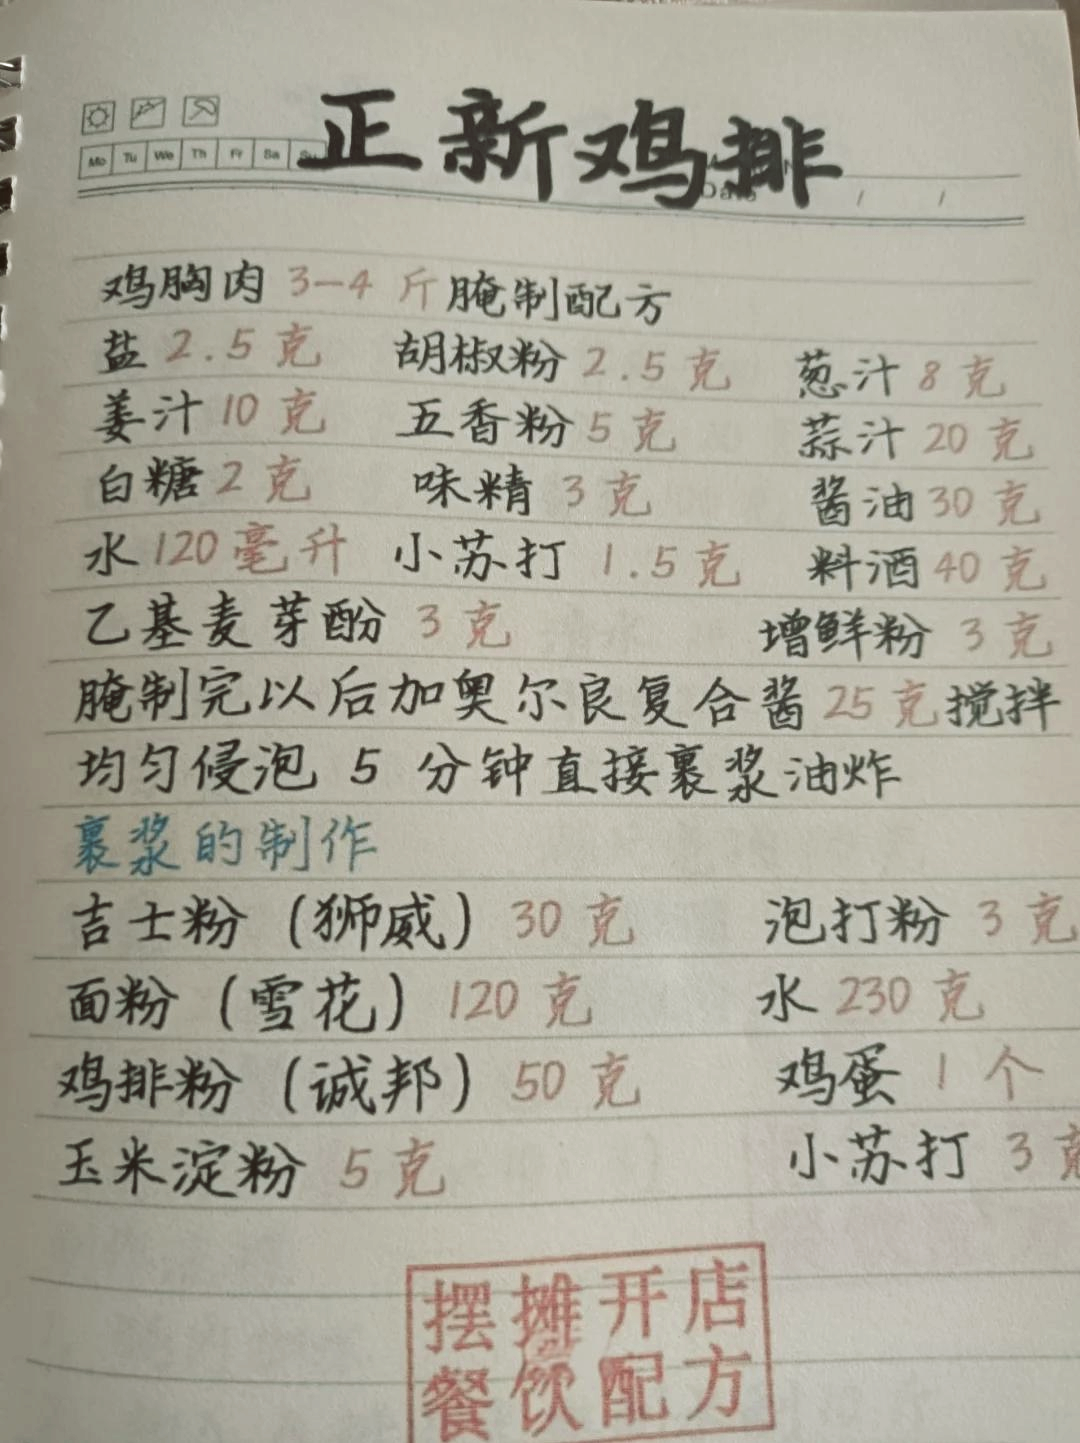 正新鸡排
Mo Tu We Th Fr Sa Su
Date / /
鸡胸肉 3-4 斤腌制配方
盐 2.5 克 胡椒粉 2.5 克 葱汁 8 克
姜汁 10 克 五香粉 5 克 蒜汁 20 克
白糖 2 克 味精 3 克 酱油 30 克
水 120 毫升 小苏打 1.5 克 料酒 40 克
乙基麦芽酚 3 克 增鲜粉 3 克
腌制完以后加奥尔良复合酱 25 克搅拌
均匀侵泡 5 分钟直接裹浆油炸
裹浆的制作
吉士粉 (狮威) 30 克 泡打粉 3 克
面粉 (雪花) 120 克 水 230 克
鸡排粉 (诚邦) 50 克 鸡蛋 1 个
玉米淀粉 5 克 小苏打 3 克
摆摊开店
餐饮配方